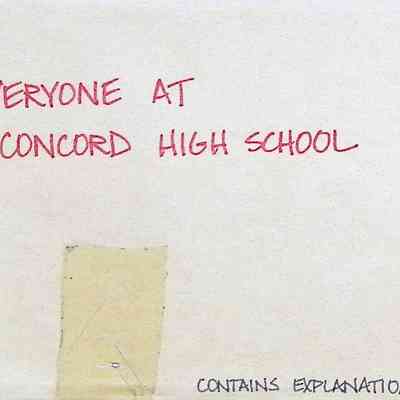 VERYONE AT
CONCORD HIGH SCHOOL
CONTAINS EXPLANATIO